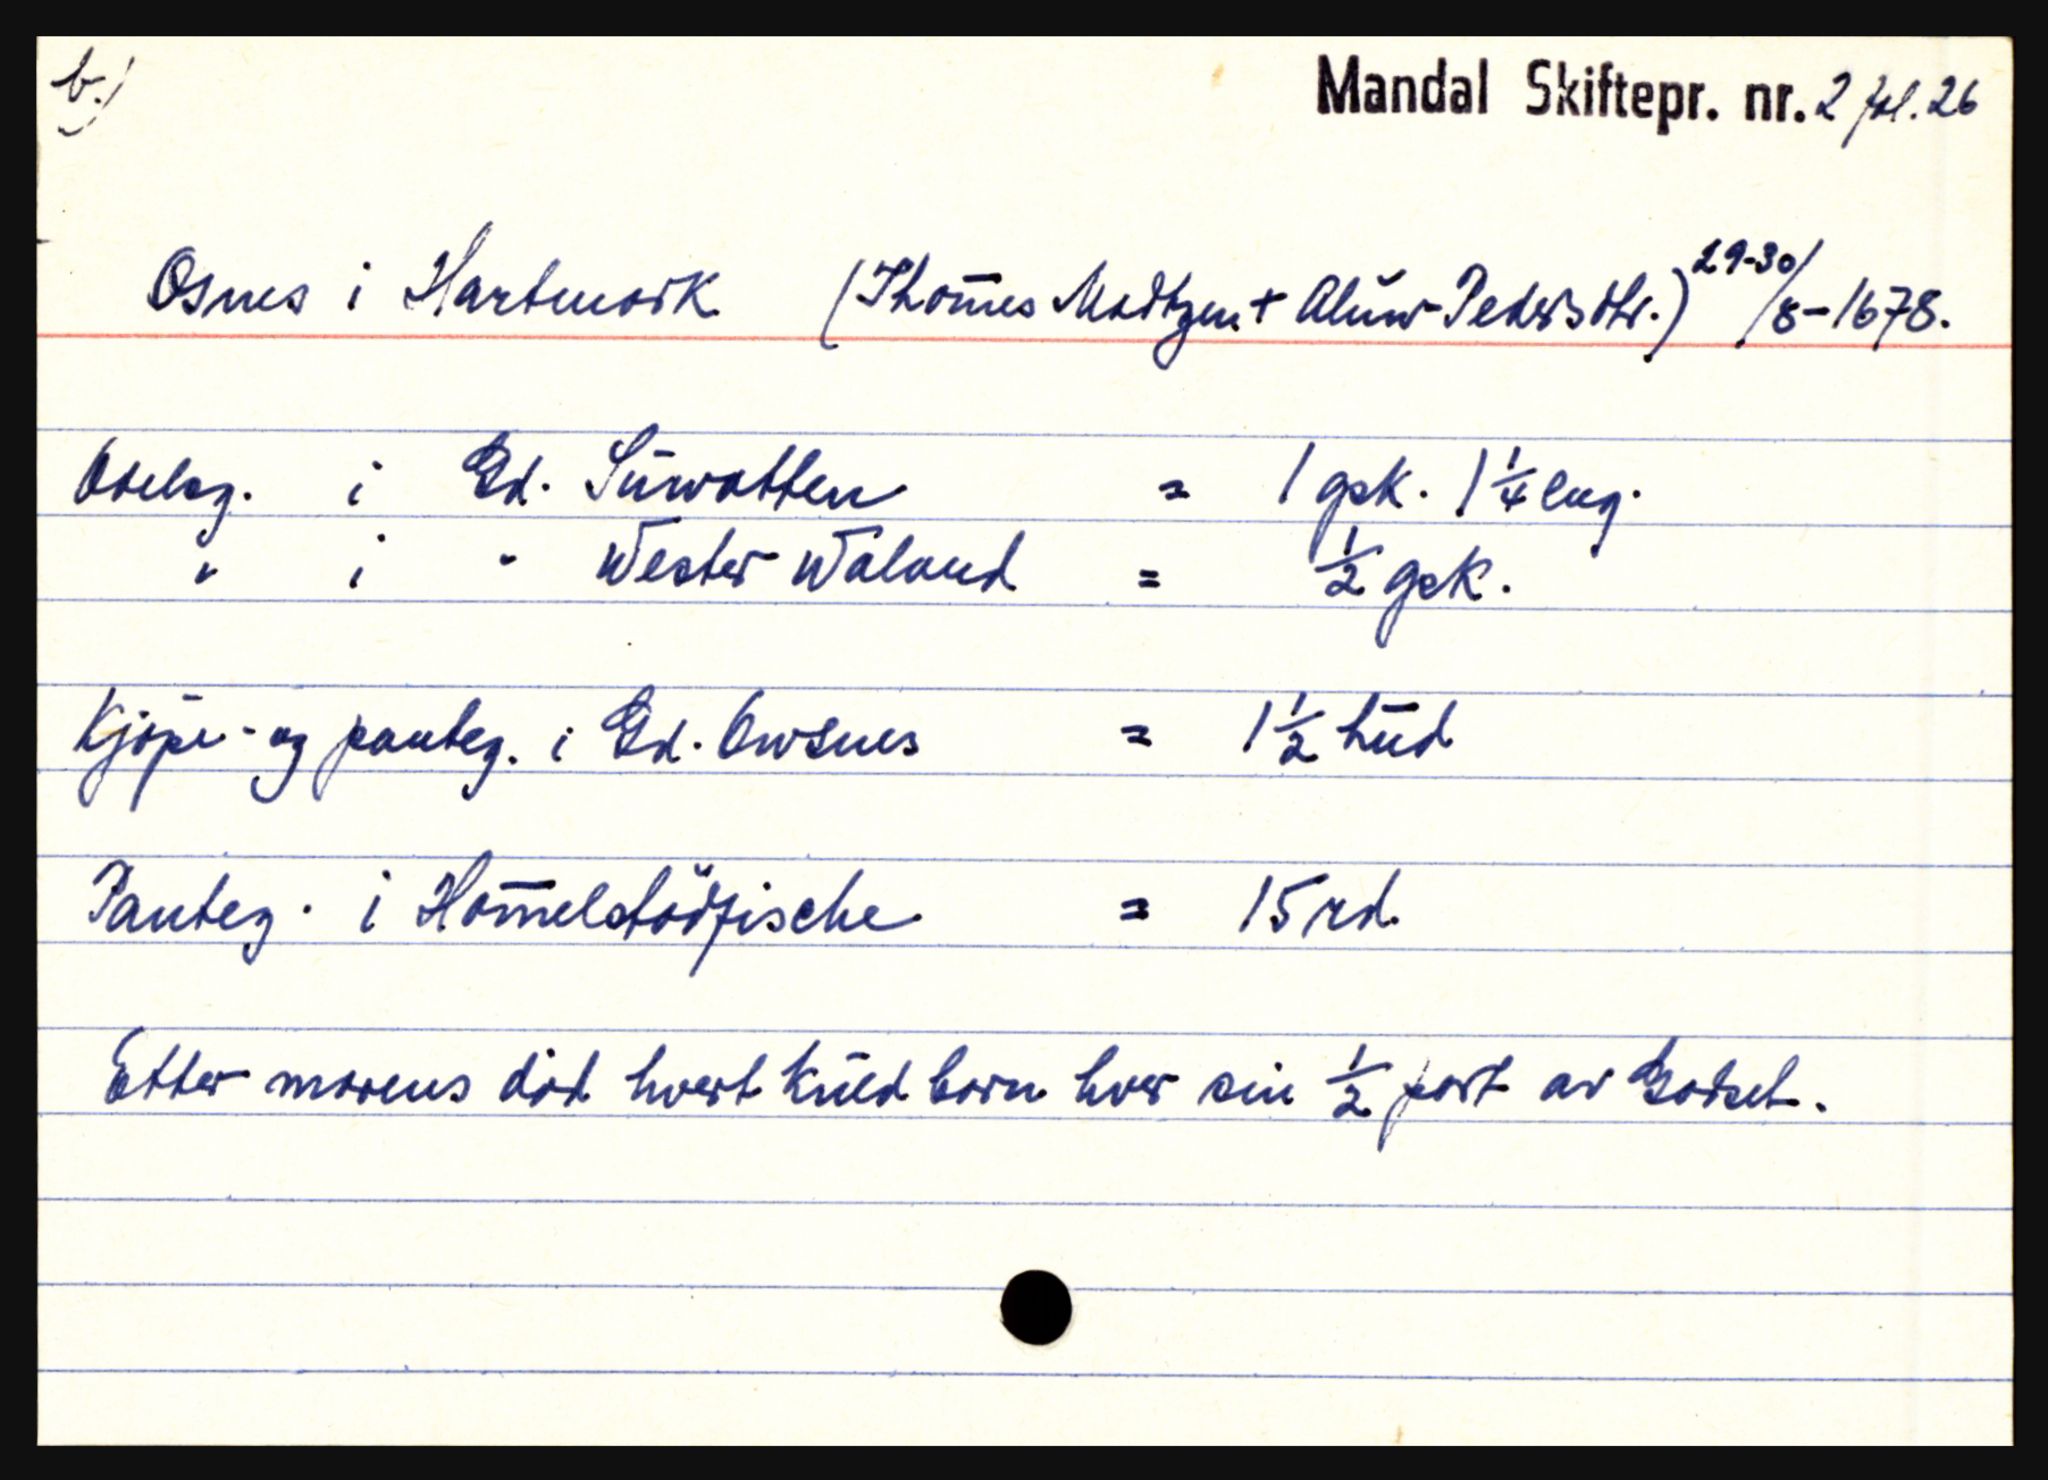 b.)
Mandal Skiftepr. nr. 2 fol. 26
Osnes i Hartmark (Thom̄es Madtzen + Aluw Pedersdtr.) 29-30/8-1678.
Odelsg. i Gd. Suwatten = 1 gsk. 1 1/4 eng.
" i " Wester Waland = 1/2 gsk.
Kjøpe- og panteg. i Gd. Owsnes = 1 1/2 hud
Panteg. i Hom̄elstödfische = 15 rd.
Etter morens död hvert kuld born hver sin 1/2 part av Godset.